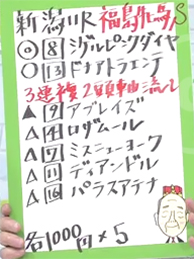 新潟11R 福島牝馬S
◎8 シゲルピンクダイヤ
○13 ドナアトラエンテ
3連複2頭軸流し
▲9 アブレイズ
△4 ロザムール
△7 ミスニューヨーク
△11 ディアンドル
△16 パラスアテナ
各1000円×5